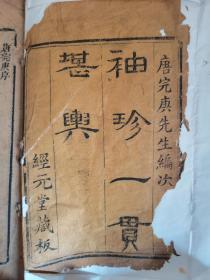 唐完庚先生編次
袖珍一貫
堪輿
經元堂藏板
唐完庚序